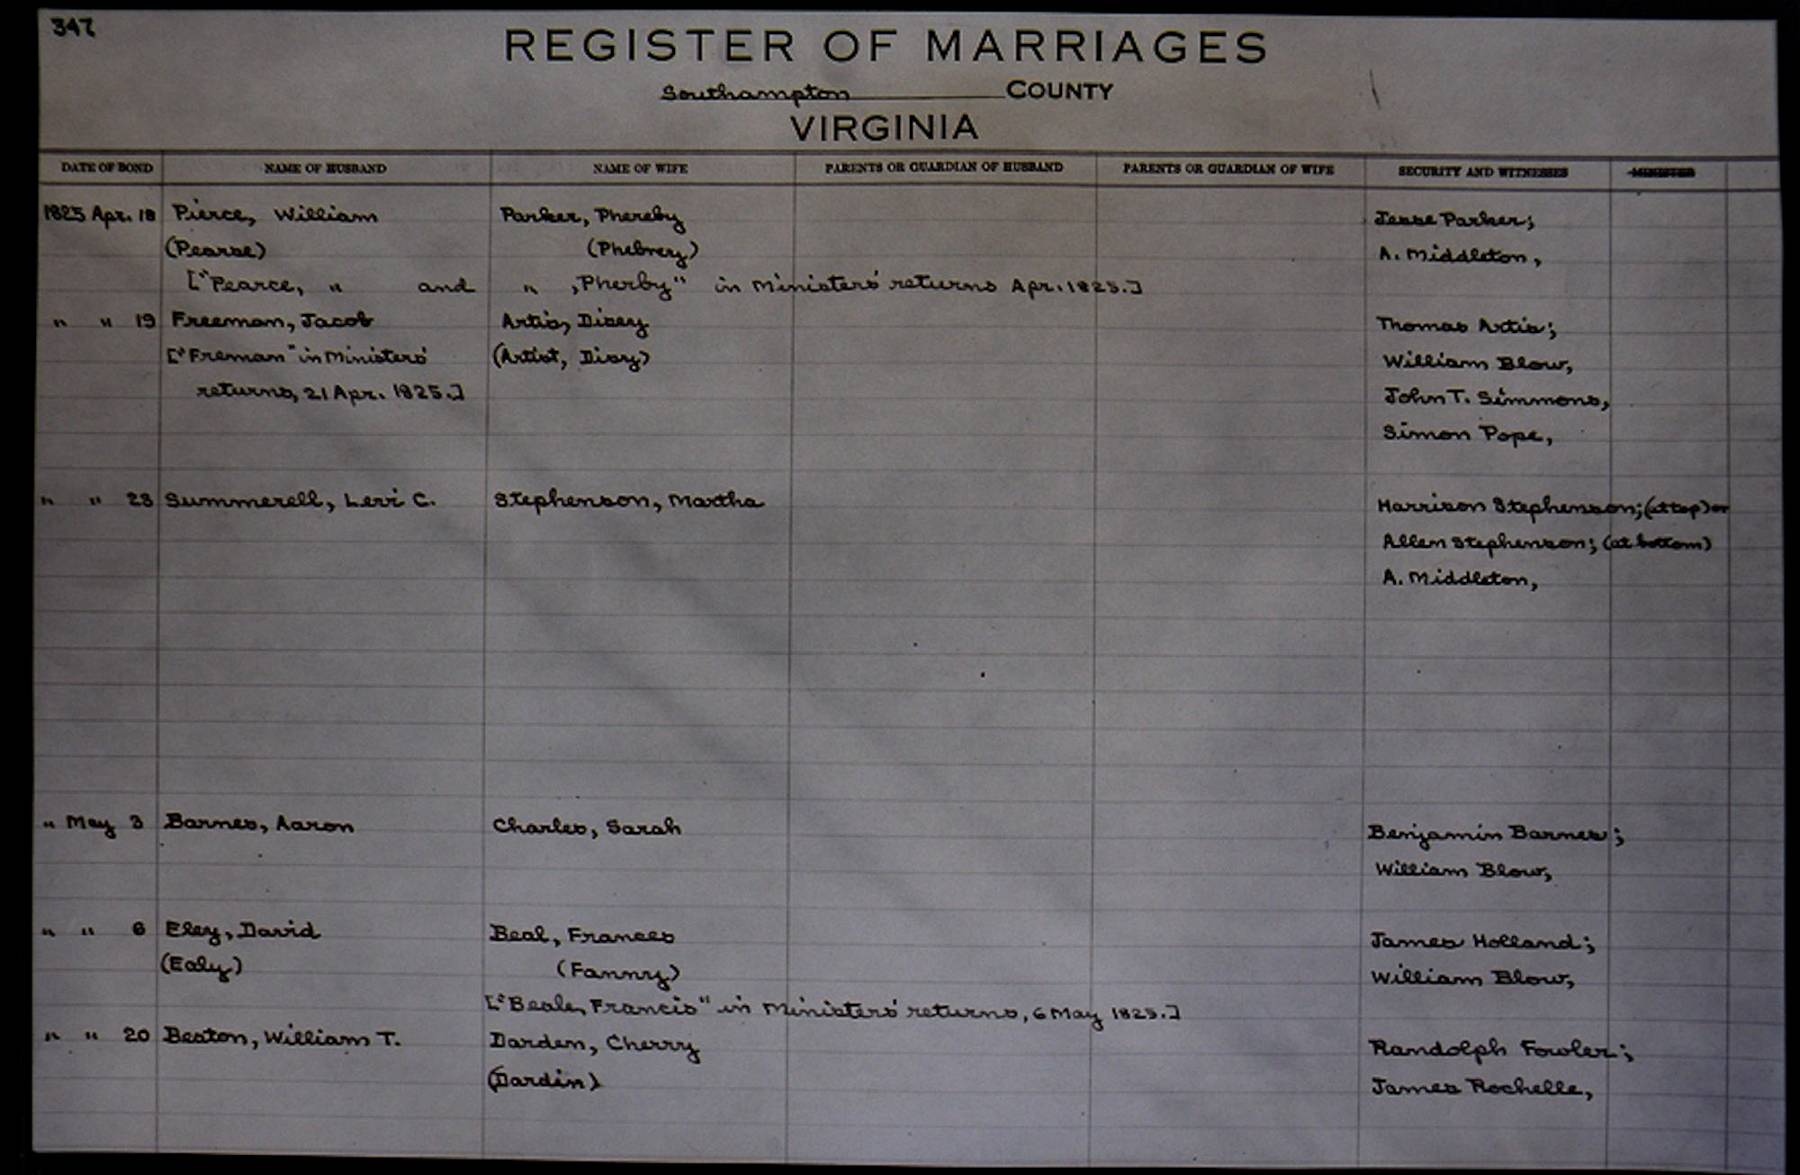 347
REGISTER OF MARRIAGES
Southampton COUNTY
VIRGINIA
DATE OF BOND NAME OF HUSBAND NAME OF WIFE PARENTS OR GUARDIAN OF HUSBAND PARENTS OR GUARDIAN OF WIFE SECURITY AND WITNESSES MINISTER
1825 Apr. 18 Pierce, William Parker, Phereby Jesse Parker;
(Pearse) (Phebrey) A. Middleton,
["Pearce, " and " , Pherby" in Ministers' returns Apr. 1825.]
" " 19 Freeman, Jacob Artis, Disey Thomas Artis;
["Freman" in Ministers' (Artist, Disy) William Blow,
returns, 21 Apr. 1825.] John T. Simmons,
Simon Pope,
" " 23 Summerell, Levi C. Stephenson, Martha Harrison Stephenson; (at top) or
Allen Stephenson; (at bottom)
A. Middleton,
" May 3 Barnes, Aaron Charles, Sarah Benjamin Barnes;
William Blow,
" " 6 Eley, David Beal, Frances James Holland;
(Ealy) (Fanny) William Blow,
["Beale, Francis" in Ministers' returns, 6 May 1825.]
" " 20 Beaton, William T. Darden, Cherry Randolph Fowler;
(Dardin) James Rochelle,